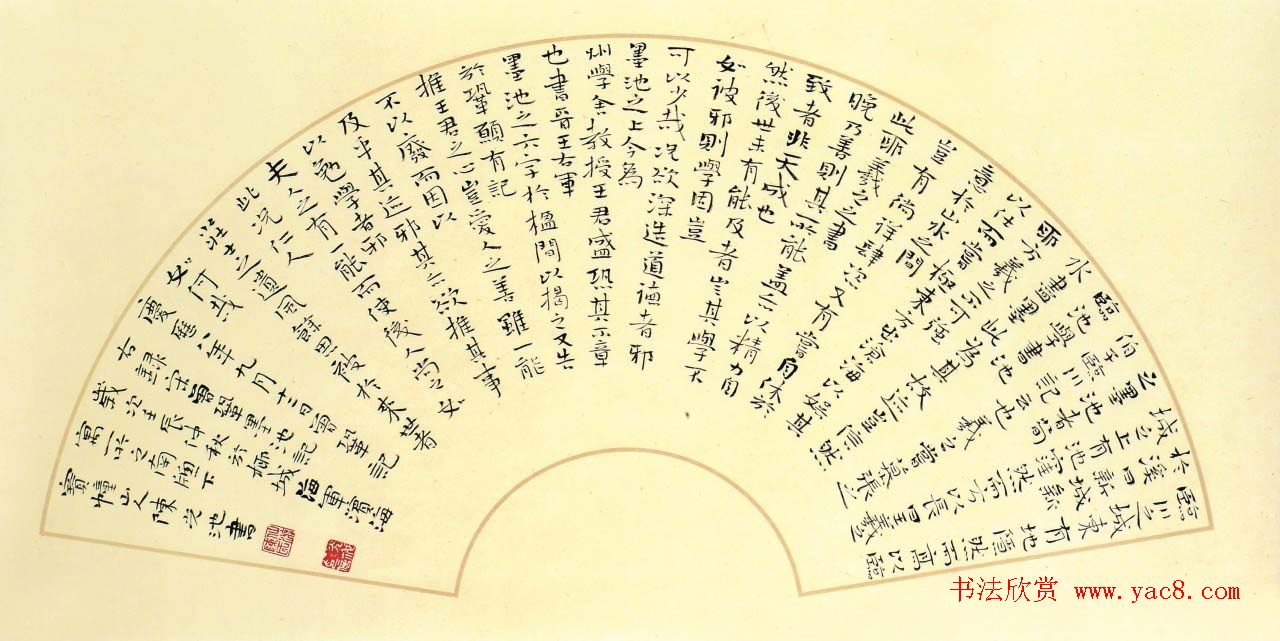 臨川之城東有地隱然而高以臨
於溪曰新城新
城之上有池窪然而方以長曰王羲之
之墨池者荀
伯子臨川記云也羲之嘗慕張芝
臨池學書池
水盡墨此為其故迹豈信然
邪方羲之不可強
以仕而嘗極東方出滄海以娛其
意於山水之間
豈有徜徉肆恣又有嘗自休於
此邪羲之之書
晚乃善則其所能蓋亦以精力自
致者非天成也
然後世未有能及者豈其學不
如彼邪則學固豈
可以少哉況欲深造道德者邪
墨池之上今為
州學舍教授王君盛恐其不章
也書晉王右軍
墨池之六字於楹間以揭之又告
於鞏願有記
推王君之心豈愛人之善雖一能
不以廢而因以
及乎其迹邪其亦欲推其事
以勉學者邪
夫人之有一能而使後人尚之如
此況仁人
莊士之遺風餘思被於來世者
如何哉
慶曆八年九月十二日曾鞏記
右錄宋曾鞏墨池記
歲次壬辰仲秋於榕城海軍濱海
寓所之南窗下
寶幢山人陳 池書
书法欣赏 www.yac8.com